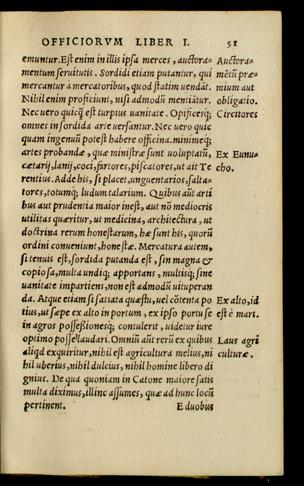 OFFICIORVM LIBER I. 51
emuntur. Est enim in illis ipsa merces, auctora- Auctora-
mentum seruitutis. Sordidi etiam putantur, qui mẽtũ præ-
mercantur à mercatoribus, quod statim uendãt. mium aut
Nihil enim proficiunt, nisi admodũ mentiãtur. obligatio.
Nec uero quicq̃ est turpius uanitate. Opificesq; Circitores
omnes in sordida arte uersantur. Nec uero quic
quam ingenuũ potest habere officina. minimeq;
artes probandæ, quæ ministræ sunt uoluptatũ, Ex Eunu-
cætarij, lanij, coci, fartores, piscatores, ut ait Te cho.
rentius. Adde his, si placet, unguentarios, salta-
tores, totumq; ludum talarium. Quibus aũt arti
bus aut prudentia maior inest, aut nõ mediocris
utilitas quæritur, ut medicina, architectura, ut
doctrina rerum honestarum, hæ sunt his, quorũ
ordini conueniunt, honestæ. Mercatura autem,
si tenuis est, sordida putanda est, sin magna &
copiosa, multa undiq; apportans, multisq; sine
uanitate impartiens, non est admodũ uituperan
da. Atque etiam si satiata quæstu, uel cõtenta po Ex alto, id
tius, ut sæpe ex alto in portum, ex ipso portu se est è mari.
in agros possessionesq; contulerit, uidetur iure
optimo posse laudari. Omniũ aũt rerũ ex quibus Laus agri
aliqd exquiritur, nihil est agricultura melius, ni culturæ.
hil uberius, nihil dulcius, nihil homine libero di
gnius. De qua quoniam in Catone maiore satis
multa diximus, illinc assumes, quæ ad hunc locũ
pertinent. E duobus